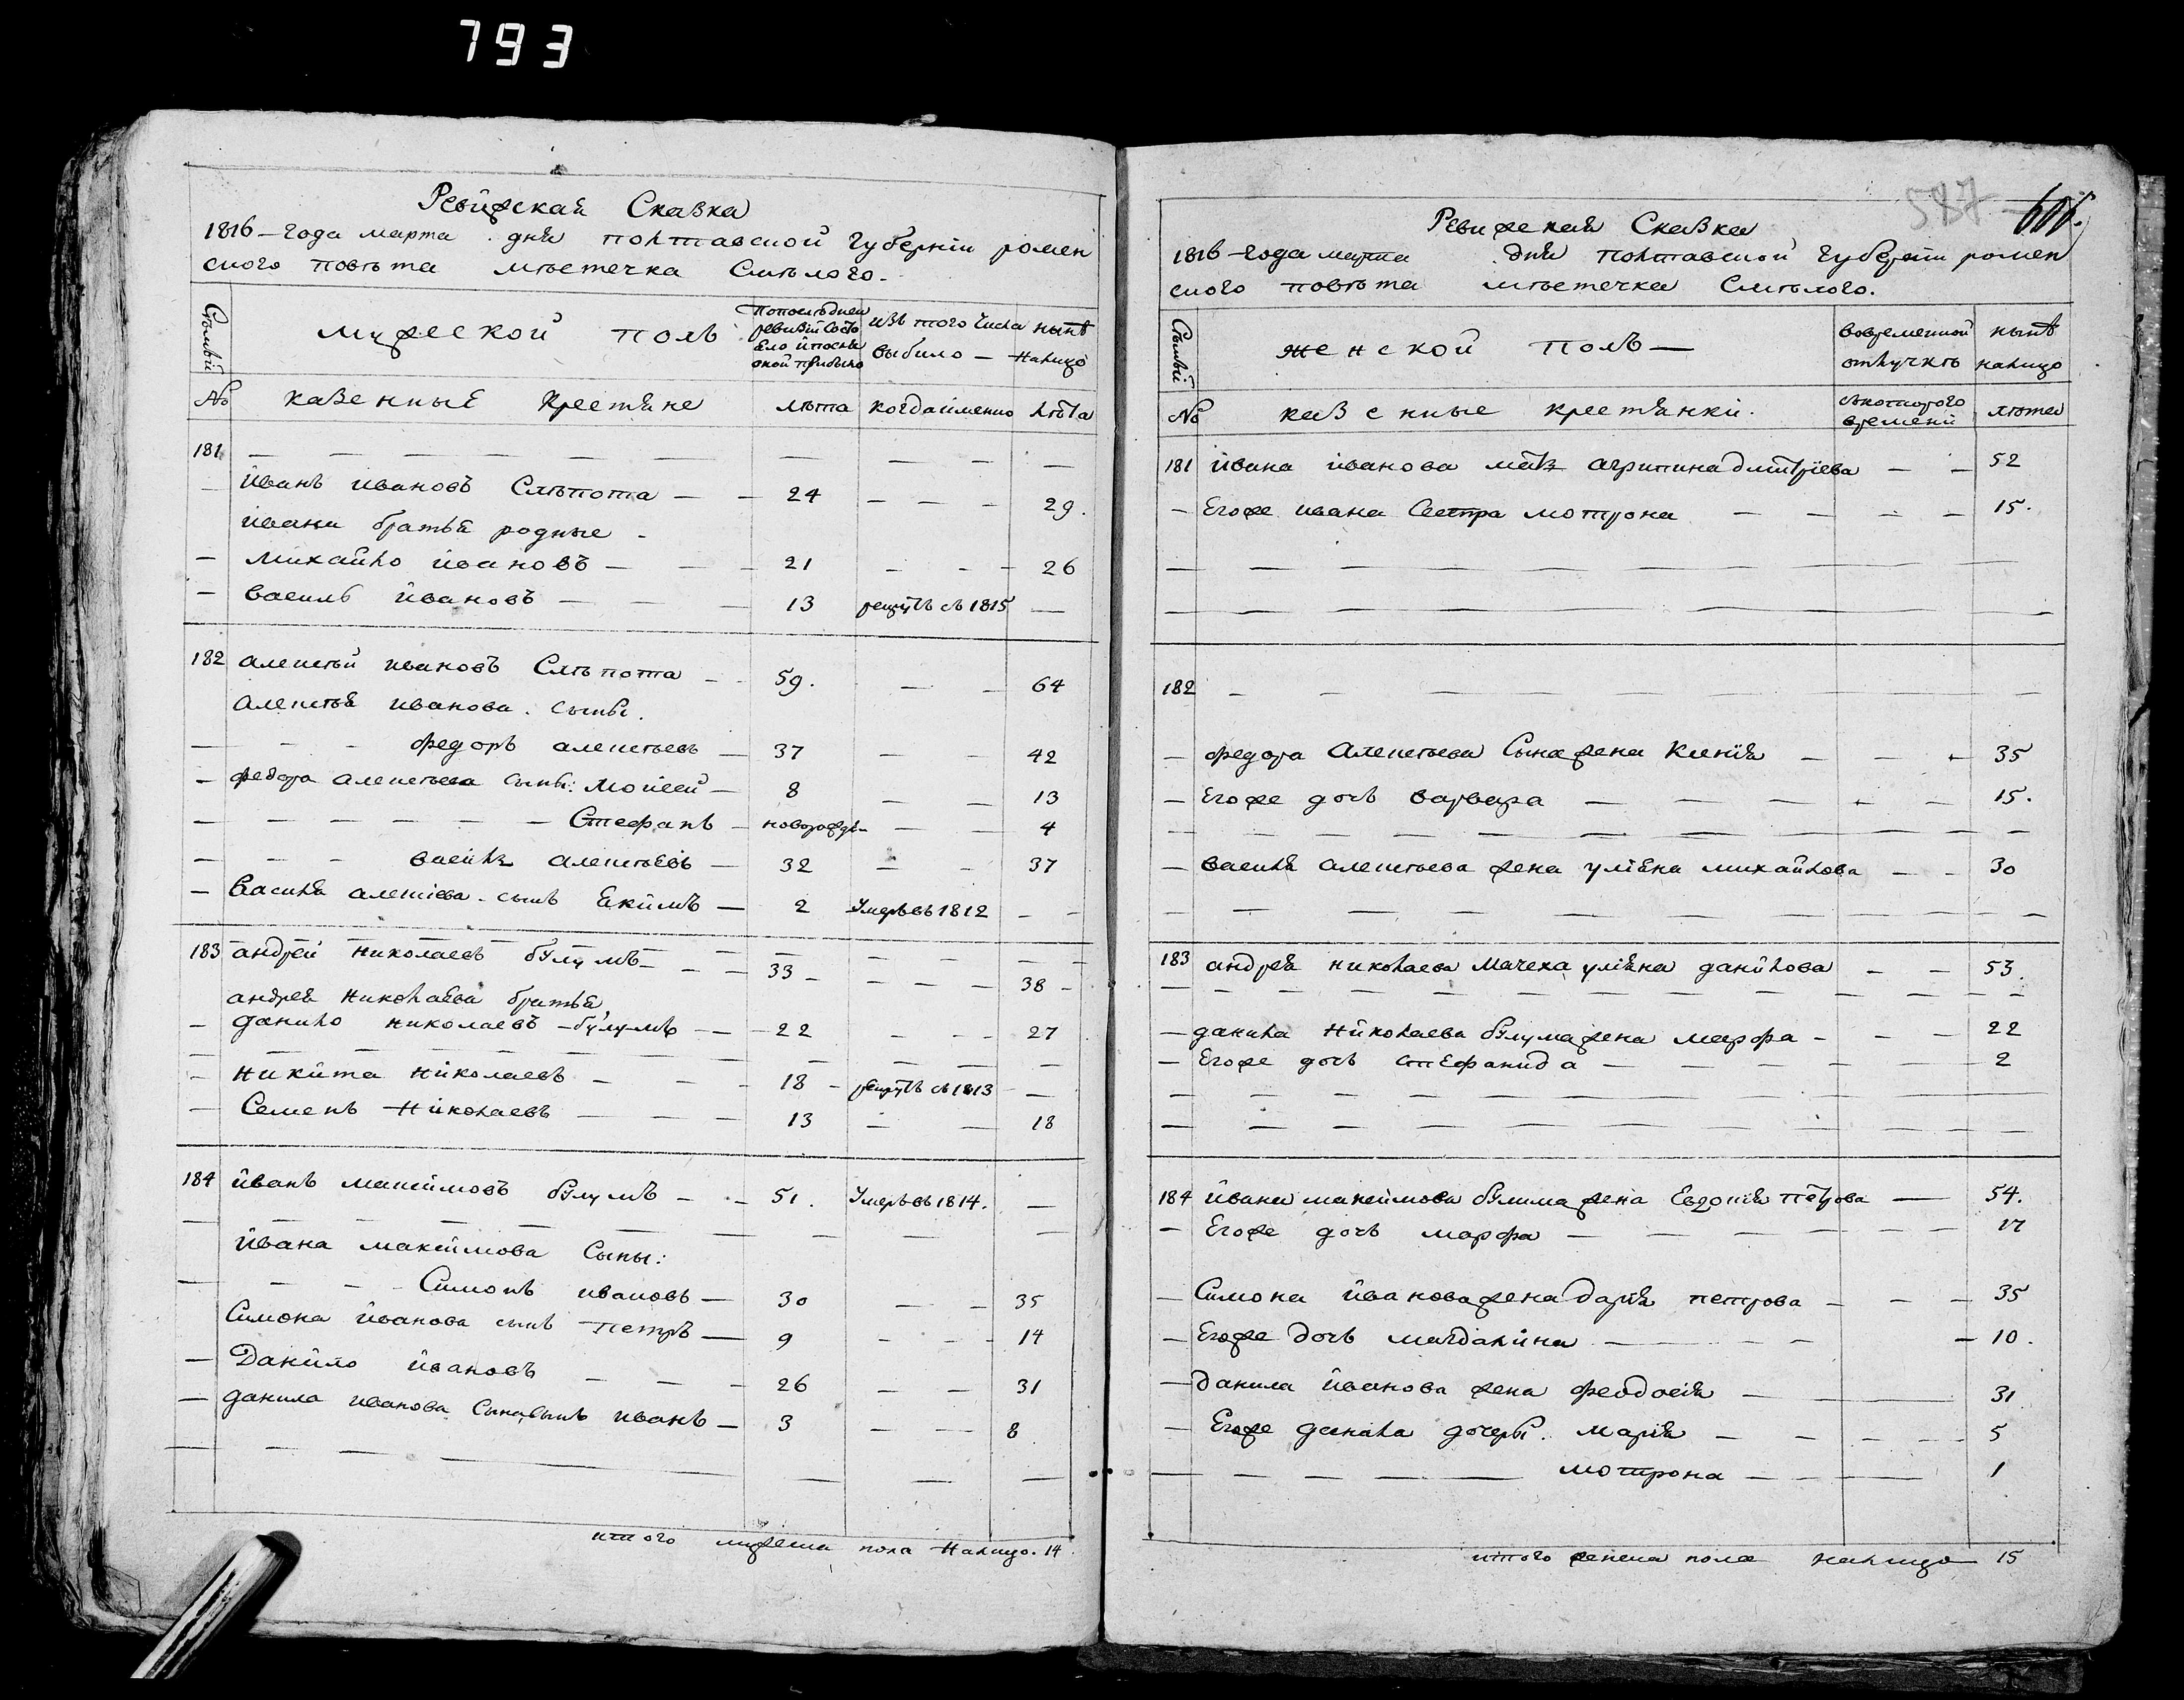 793
Ревизская Сказка
1816 – года марта . дня полтавской губернии ромен
ского повѣта мѣстечка Смѣлого.
Семьи
мужеской полъ
По последней
ревизіи состо
яло и после
оной прибыло
изъ того числа
выбило —
нынѣ
налицо
№
казенные крестяне
лѣта
когда именно
лѣта
181 — — — — — — — —
— иванъ ивановъ Слѣпота — — 24 — — — 29.
ивана братья родные -
— михайло ивановъ — — — 21 - - - 26
— василь ивановъ — — — 13 рекрутъ съ 1815 —
182 алексѣй ивановъ Слѣпота - - 59. — — 64
алексѣя иванова . сыны.
— - - федоръ алексѣевъ — 37 — — 42
— федора алексѣева сыны: мойсей — 8 — — 13
— — — — — — Стефанъ — новорожде- — — 4
— — - василь алексѣевъ — 32 — — 37
— василя алексіева - сынъ Екимъ — 2 Умеръ въ 1812 - -
183 андрей николаевъ булумъ — - — 33 - - - - - 38 -
андрея николаева братья
— данило николаевъ – булумъ — — 22 - - - 27
— никита николаевъ - - - 18 - рекрутъ съ 1813 —
— Семенъ николаевъ — — — 13 — — 18
184 иванъ максимовъ булумъ - - 51. Умеръ въ 1814. —
ивана максимова Сыны:
— - - Симонъ ивановъ — 30 — — 35
Симона иванова сынъ петръ — 9 - - - 14
— Данило ивановъ — — — 26 — — 31
— данила иванова сына сынъ иванъ — 3 — — - 8
итого мужеска пола налицо. 14
587
Ревизская Сказка
1816 – года марта . дня полтавской губерніи ромен
ского повѣта мѣстечка Смѣлого.
Семьи
женской полъ —
во временной
отлучкѣ
нынѣ
налицо
№
казенные крестянки.
съ которого
времени
лѣта
181 ивана иванова мать агрипина дмитріева — — 52
— Егоже ивана Сестра мотрона — — - — 15.
182 - - — — — — — —
— федора алексѣева Сына жена Ксенія — — - 35
— Егоже дочь варвара — — — - — 15.
— василя алексѣева жена уліяна михайлова — - 30
183 андрея николаева мачеха уліяна данилова - — 53.
— данила николаева булума жена марфа - - — 22
— Егоже дочь стефанида — — — - — 2
184 ивана максимова булима жена Евдокія петрова — 54.
— Егоже дочь марфа — — — — — 17
— Симона иванова жена дарія петрова — - — 35
— Егоже дочь магдалина — — - — 10.
— данила иванова жена феодосія — — 31
— Егоже данила дочеры. марія — - — - - 5
— — — — — мотрона — - — 1
итого женска пола налицо 15